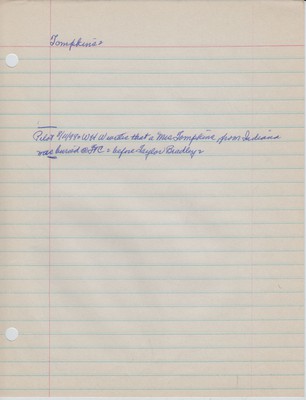 Tompkins
Pilot W H W writes that a Mrs Tompkins, from Indiana
was buried @ before Taylor Bradley